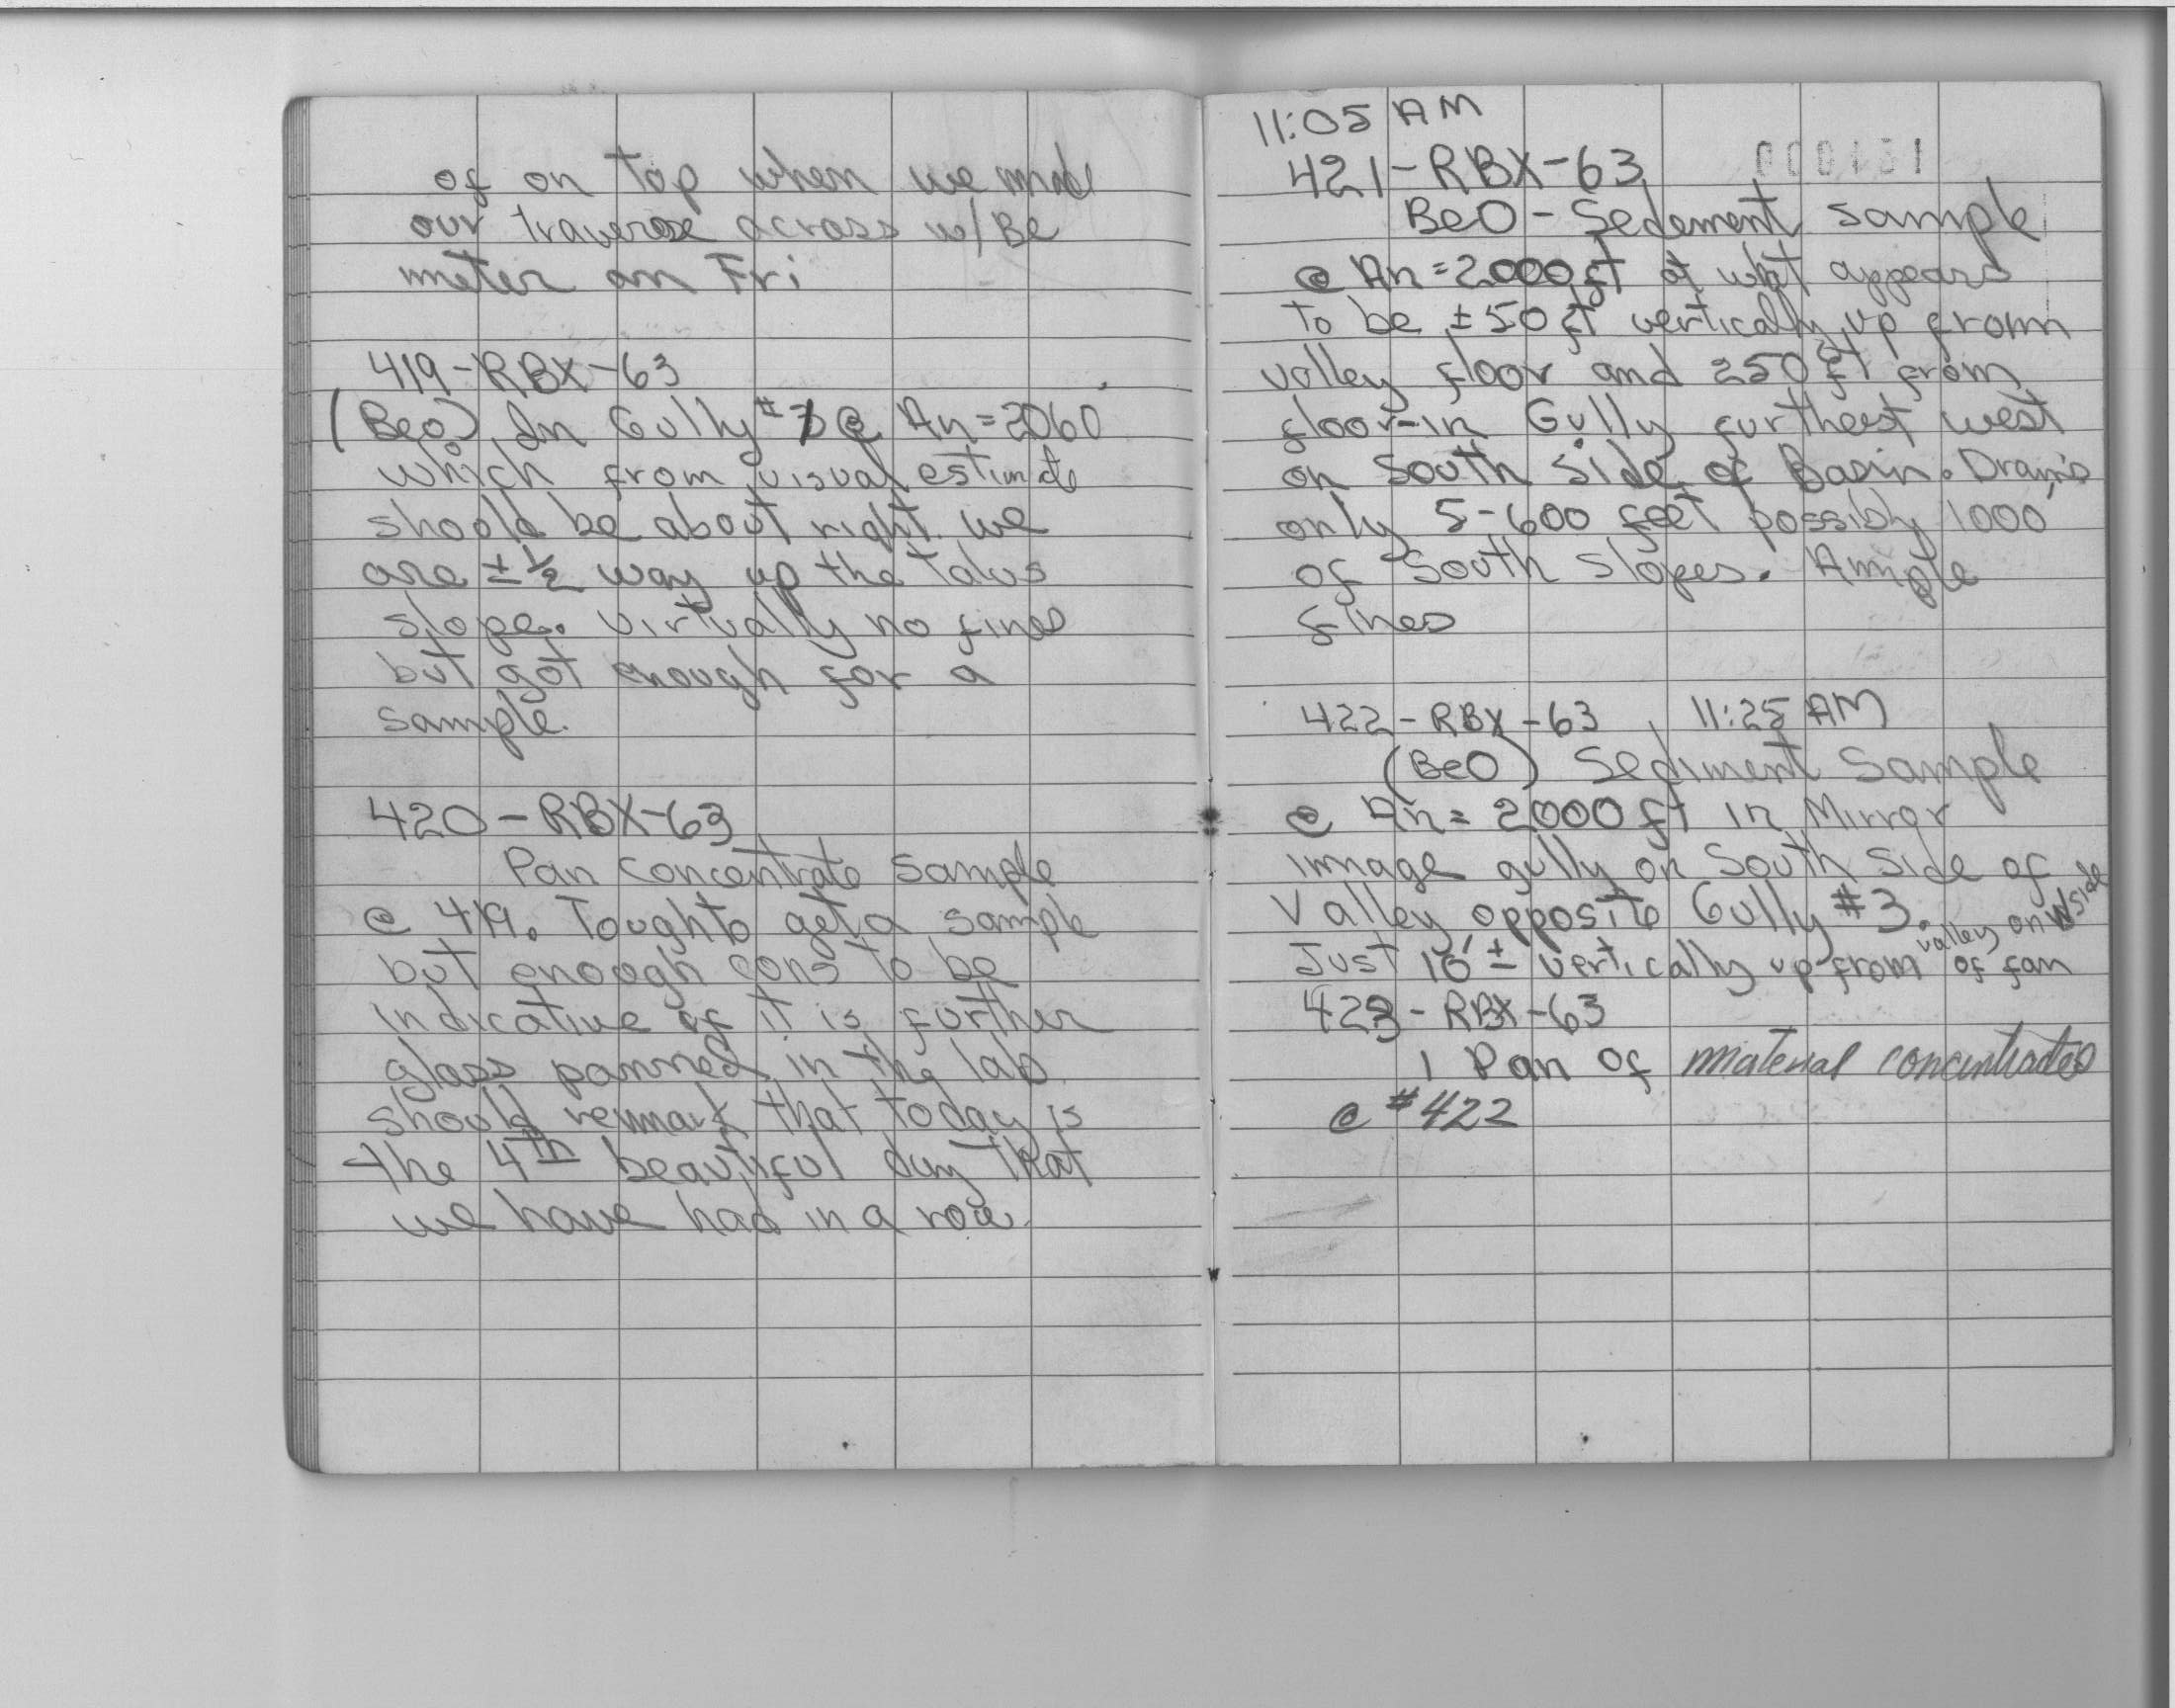 of on top when we made
our traverse across w/ Be
meter on Fri
419-RBX-63
(BeO) In Gully # @ An=2060'
which from visual estimate
should be about right. we
are ±½ way up the talus
slope. virtually no fines
but got enough for a
sample.
420-RBX-63
Pan concentrate sample
@ 419. Tough to get a sample
but enough cons to be
indicative if it is further
glass panned in the lab.
should remark that today is
the 4th beautiful day that
we have had in a row.
11:05 AM
421-RBX-63
BeO-Sedement sample
@ An=2000 ft at what appears
to be ±50 ft vertically up from
valley floor and 250 ft from
floor-in Gully furthest west
on South side of Basin. Drains
only 5-600 feet possibly 1000'
of South slopes. Ample
fines
422-RBX-63 11:25 AM
(BeO) Sediment Sample
@ An= 2000 ft in Mirror
image gully on South side of
Valley opposite Gully #3.
Just 10'± vertically up from valley on W side of fan
423-RBX-63
1 Pan of material concentrated
@ #422